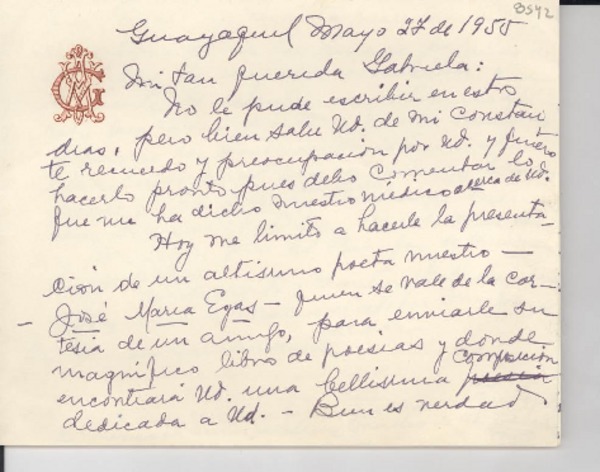 8592
Guayaquil Mayo 27 de 1955
Mi tan querida Gabriela:
No le pude escribir en estos
días, pero bien sabe Ud. de mi constan
te recuerdo y preocupación por Ud. y quiero
hacerlo pronto pues debo comentar lo
que me ha dicho nuestro médico acerca de Ud.
Hoy me limito a hacerle la presenta-
ción de un altísimo poeta nuestro —
— José María Egas — quien se vale de la cor-
tesía de un amigo, para enviarle su
magnífico libro de poesias y donde
encontrará Ud. una bellísima composición
dedicada a Ud. — Bien es verdad